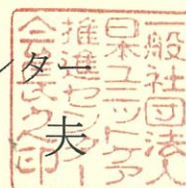 一般社団法人
日本ユニットケア
推進センター
会長之印
ター
夫